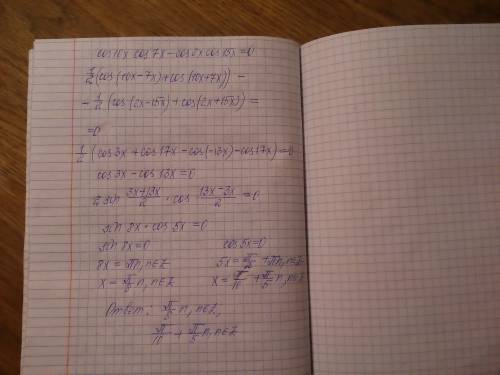 cos10x cos7x - cos2x cos15x = 0
1/2 (cos(10x-7x) + cos(10x+7x)) -
- 1/2 (cos(2x-15x) + cos(2x+15x)) =
= 0
1/2 (cos3x + cos17x - cos(-13x) - cos17x) = 0
cos3x - cos13x = 0
2 sin (3x+13x)/2 · cos (13x-3x)/2 = 0
sin 8x · cos 5x = 0
sin 8x = 0 cos 5x = 0
8x = πn, n∈Z 5x = π/2 + πn, n∈Z
x = π/8 n, n∈Z x = π/10 + π/5 n, n∈Z
Ответ: π/8 n, n∈Z,
π/10 + π/5 n, n∈Z